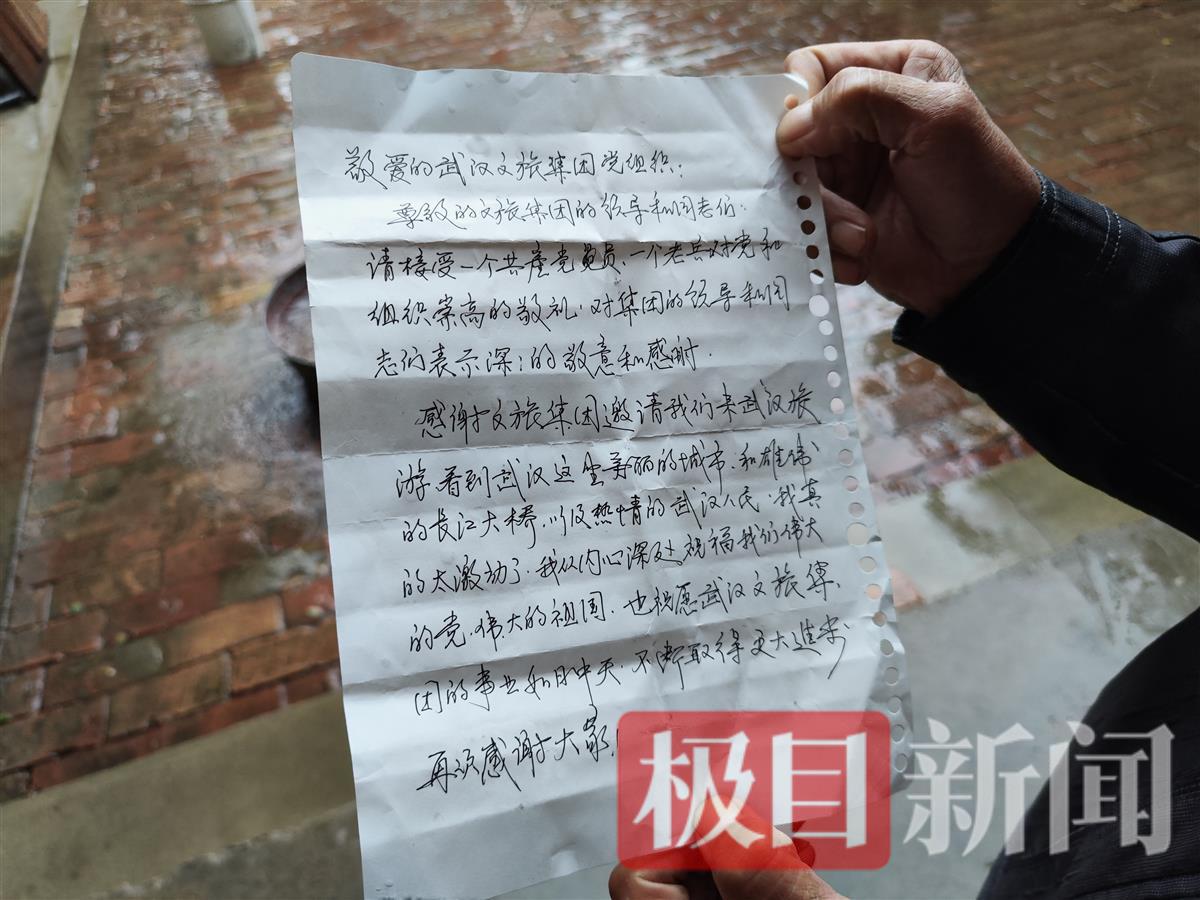 敬爱的武汉文旅集团党组织：
尊敬的文旅集团的领导和同志们：
请接受一个共产党员、一个老兵对党和
组织崇高的敬礼，对集团的领导和同
志们表示深：的敬意和感谢.
感谢文旅集团邀请我们来武汉旅
游，看到武汉这座美丽的城市、和雄伟
的长江大桥，以及热情的武汉人民，我真
的太激动了，我从内心深处祝福我们伟大
的党，伟大的祖国，也祝愿武汉文旅集
团的事业如日中天，不断取得更大进步
再次感谢大家！
极目新闻